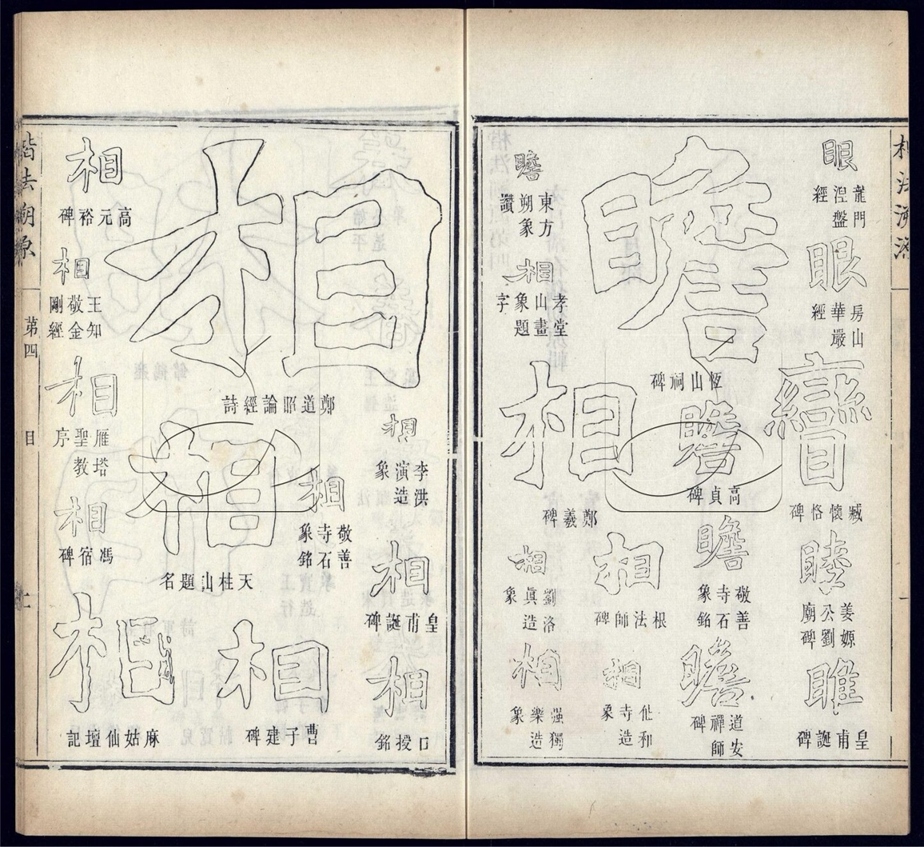 眼
龍門涅盤經
眼
房山華嚴經
矕
臧懷恪碑
睦
姜嫄公劉廟碑
睢
皇甫誕碑
瞻
恆山祠碑
瞻
高貞碑
瞻
敬善寺石象銘
瞻
道安禪師碑
瞻
東方朔象讚
相
孝堂山畫象題字
相
鄭羲碑
相
根法師碑
相
劉洛眞造象
相
仳和寺造象
相
强獨樂造象
相
鄭道昭論經詩
相
李洪演造象
相
敬善寺石象銘
相
皇甫誕碑
相
口授銘
相
天柱山題名
相
曹子建碑
相
高元裕碑
相
王知敬金剛經
相
雁塔聖教序
相
馮宿碑
相
麻姑仙壇記
楷法溯原
第四
目